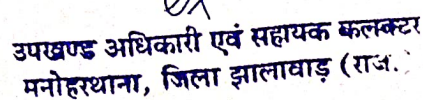 उपखण्ड अधिकारी एवं सहायक कलक्टर
मनोहरथाना, जिला झालावाड़ (राज.